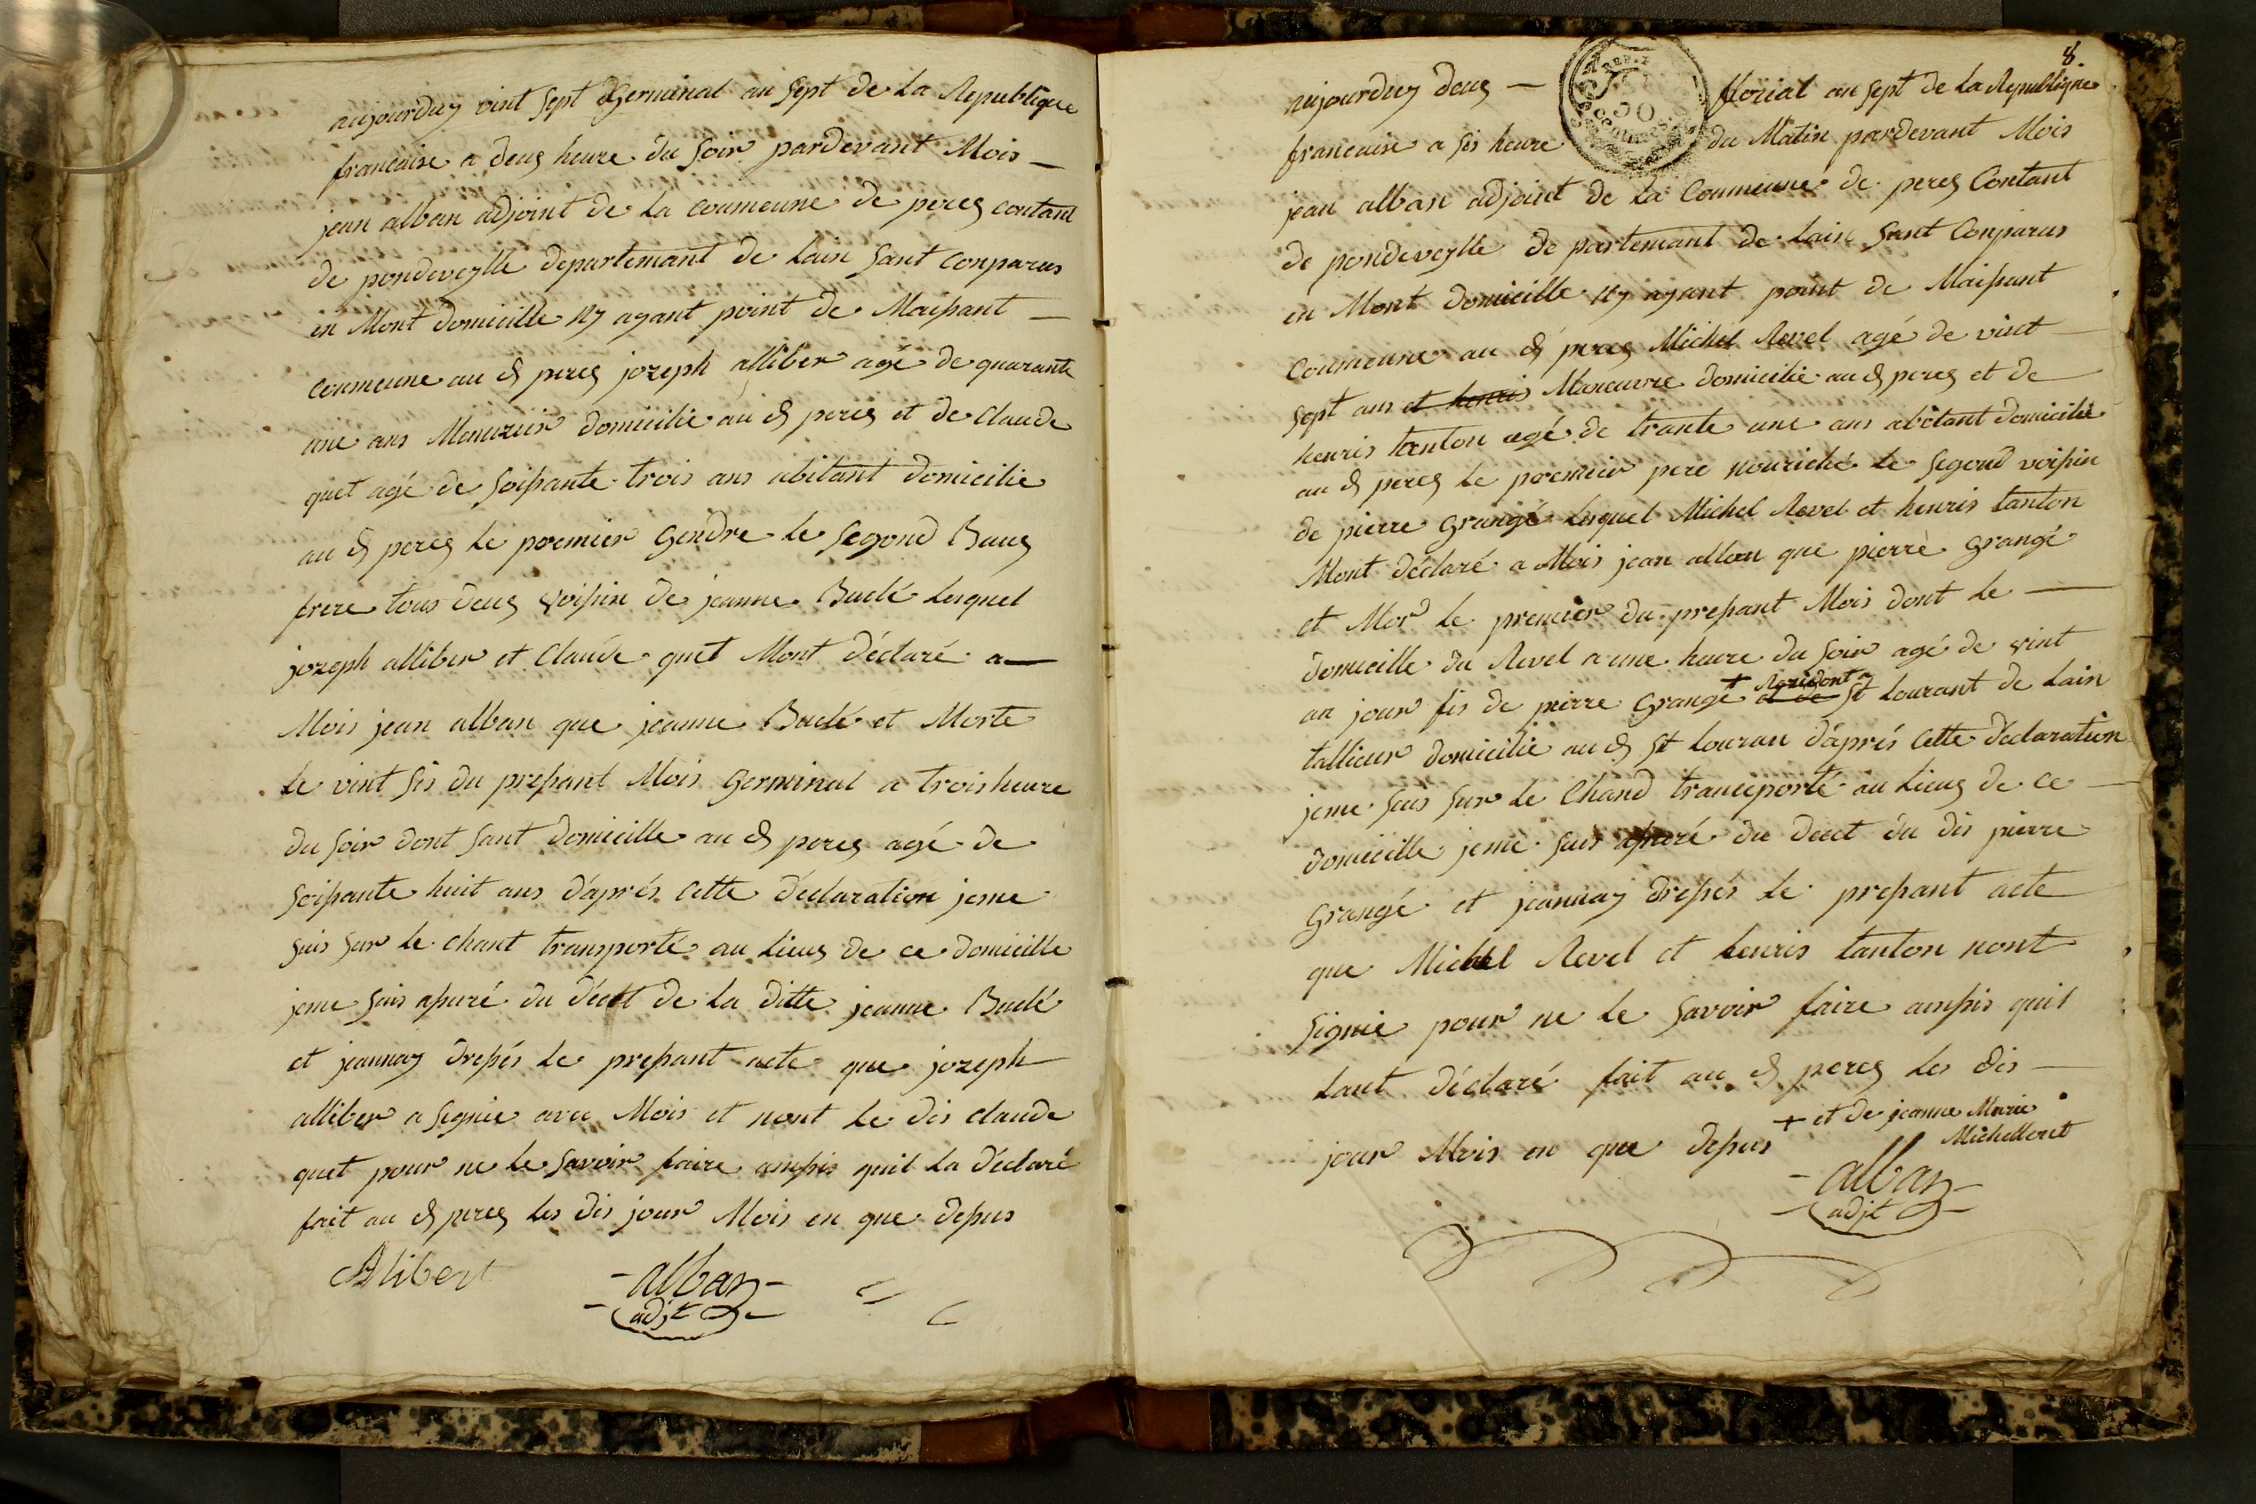 aujourduy vint sept Germinal an sept de La Republique
francaise a deus heure du soir pardevant Mois
jean alban adjoint de La coumeune de peres contant
de pondeveylle departemant de Lain sant Conparus
en Mont domicille ny ayant point de Maissant
coumeune au d peres jozeph alliber agé de quarante
une ans Menuzier domicilie au d peres et de Claude
quet agé de soissante trois ans abitant domicilie
au d peres Le premier Gendre Le segond Baus
frere tous deus voissin de jeanne Buclé Lesquel
jozeph alliber et Claude quet Mont déclaré a
Mois jean alban que jeanne Buclé et Morte
Le vint sis du pressant Mois Germinal a trois heure
du soir dont sant domicille au d peres agé de
soissante huit ans d'aprés cette déclaration jeme
suis sur Le chant transporté au Lieus de ce domicille
jeme suis assuré du décet de La ditte jeanne Buclé
et jeannay dressés Le pressant acte que jozeph
alliber a signie avec Mois et nont Le dis claude
quet pour ne Le savoir faire anssis quil La déclaré
fait au d peres Les dis jour Mois en que dessus
Alibert
alban
adjt
8
aujourduy deus floriat an sept de La Republique
francaise a sis heure du Matin pardevant Mois
jean alban adjoint de La Coumeune de peres Contant
de pondeveylle departemant de Lain sant Conparus
en Mont domicille ny ayant point de Maissant
Coumeune au d peres Michel Revel agé de vint
sept ans et henris Maneuvre domicilié au d peres et de
henris tanton agé de trante une ans abitant domicilié
au d peres Le premier pere nouricié Le segond voissin
de pierre Grangé Lesquel Michel Revel et henris tanton
Mont déclaré a Mois jean alban que pierre Grangé
et Mor Le premier du pressant Mois dont Le
domicille du Revel a une heure du soir agé de vint
un jour fis de pierre Grangé + et de Rezidant a St Lourant de Lain
tallieur domicilie au d St Louran d'aprés cette déclaration
jeme suis sur Le Chand transporté au Lieus de ce
domicille jeme suis assuré du decet du dis pierre
Grangé et jeannay dressés Le pressant acte
que Michel Revel et henris tanton nont
signie pour ne Le savoir faire anssis quil
Lant déclaré fait au d peres Les dis
jour Mois en que dessus + et de jeanne Marie
Michellont
alban
adjt